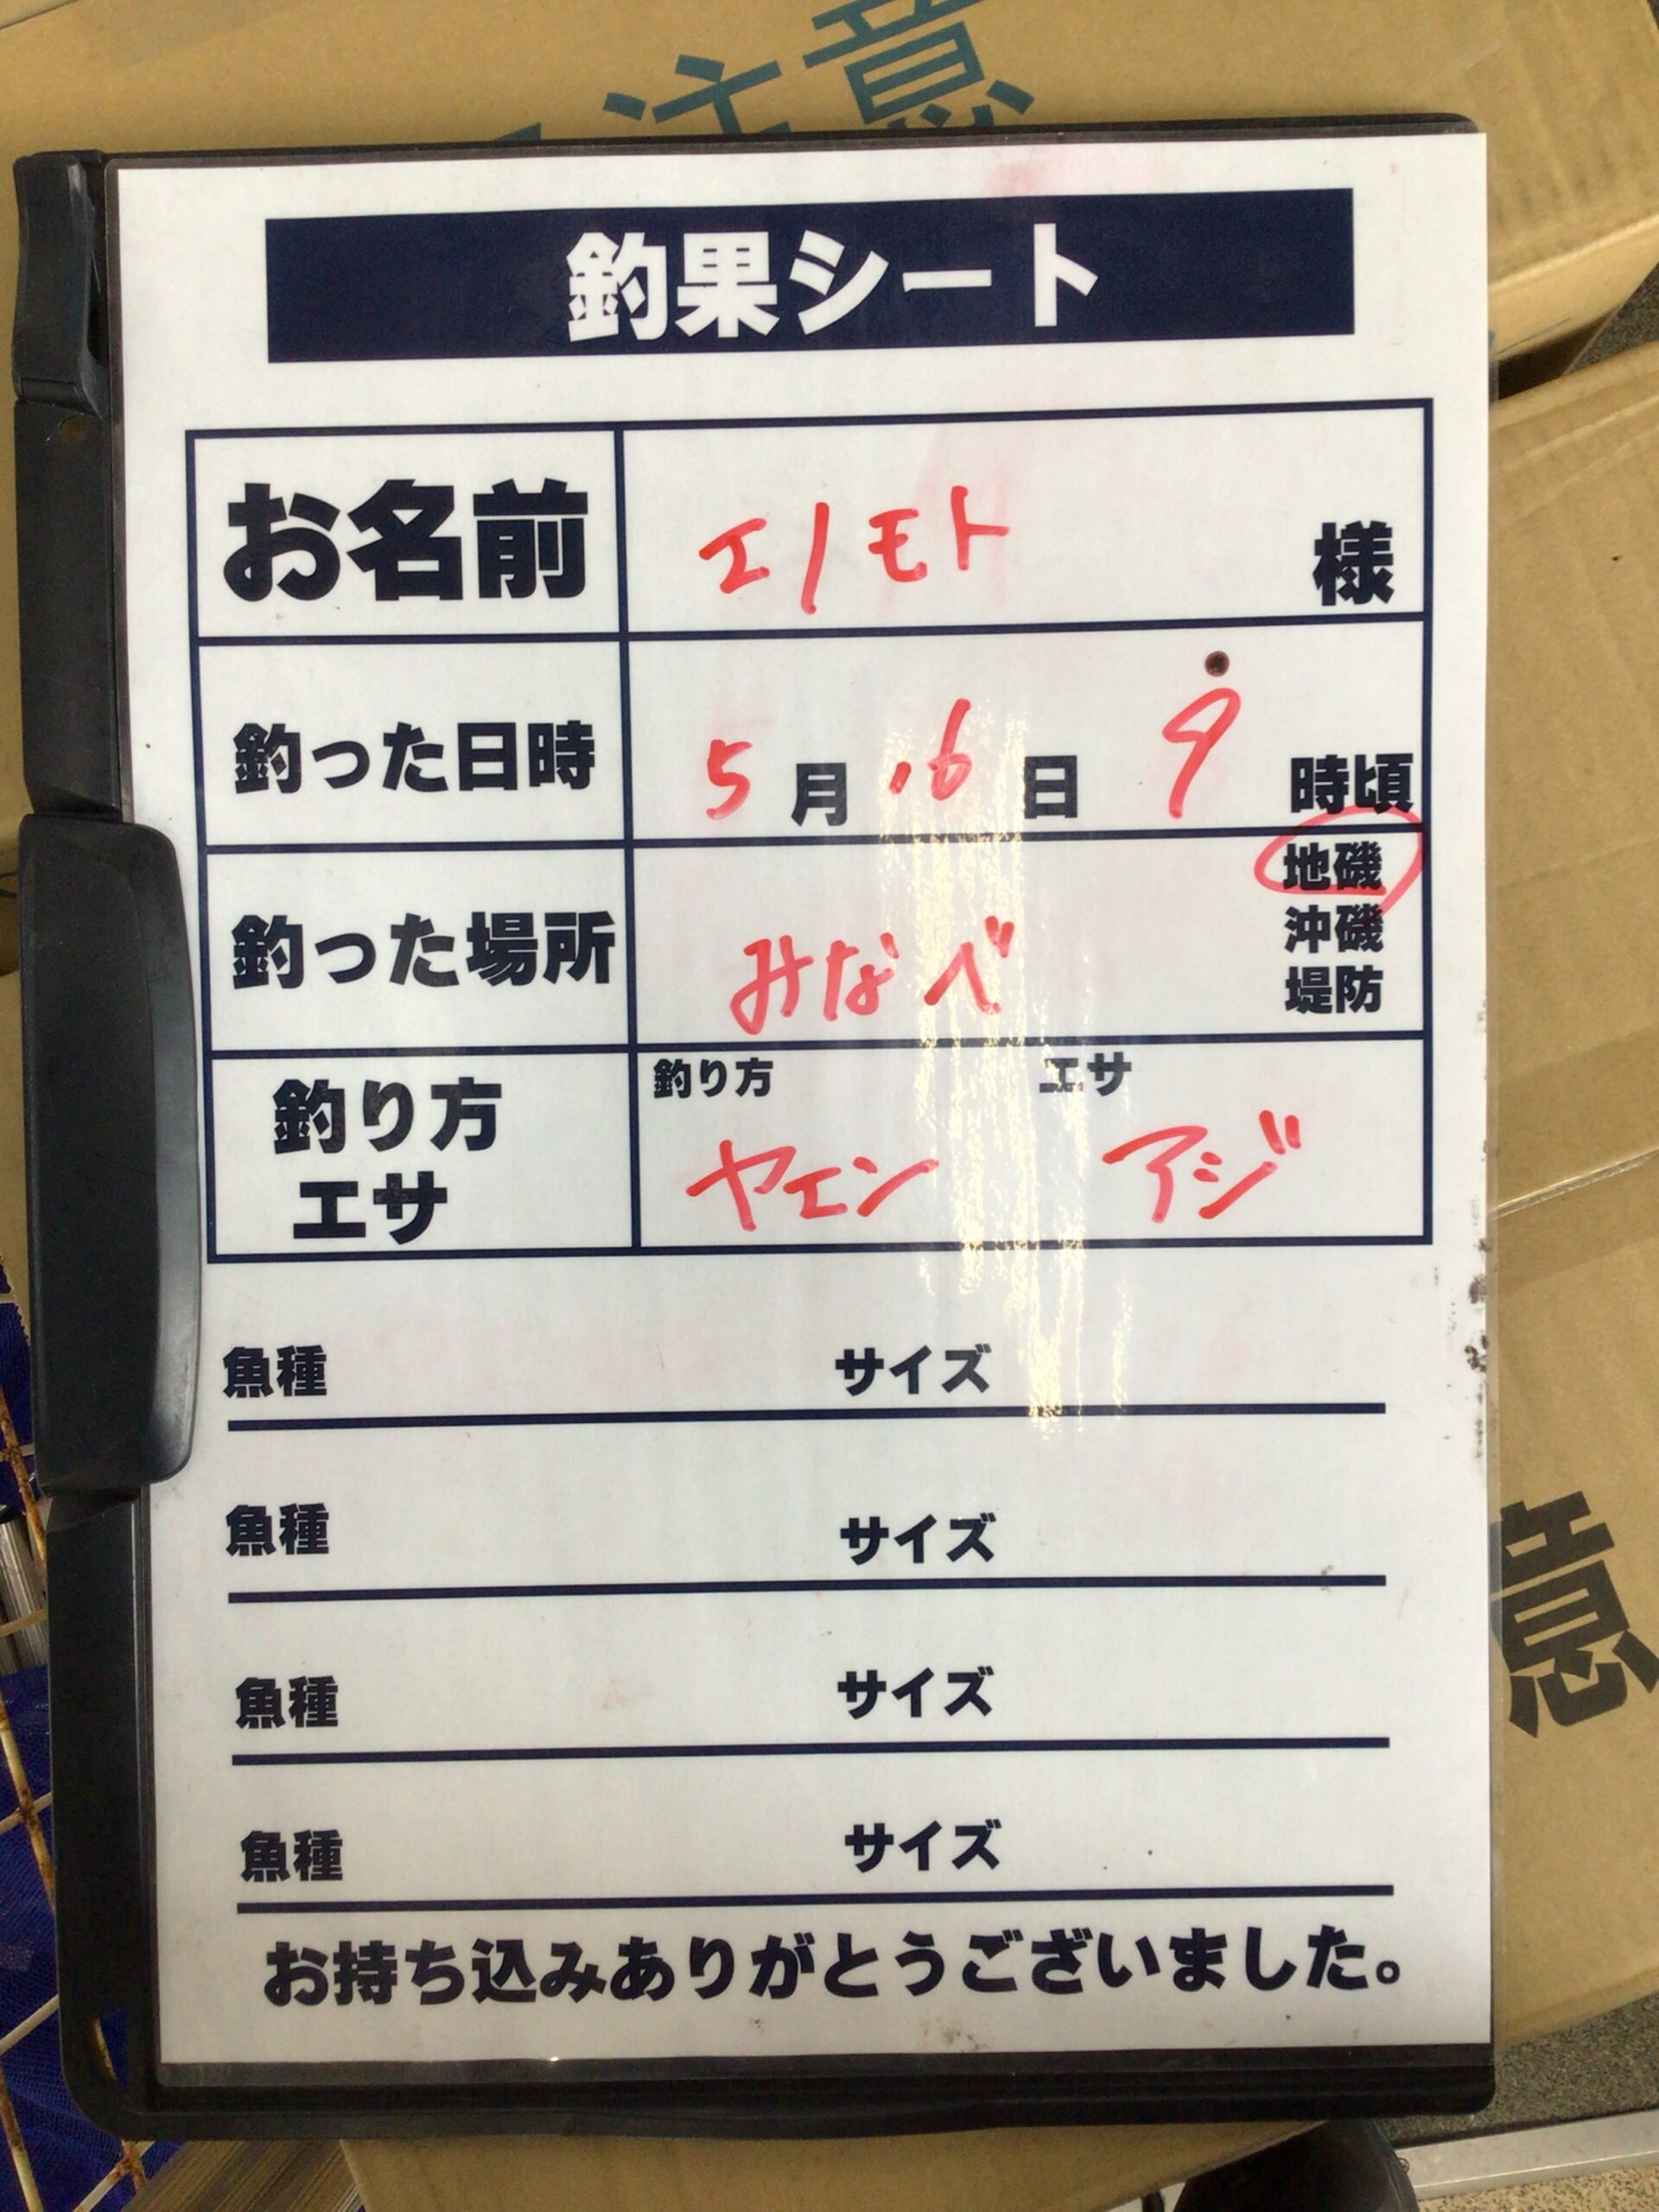 注意
釣果シート
お名前 エノモト 様
釣った日時 5月 6日 9 時頃
釣った場所 みなべ 地磯
沖磯
堤防
釣り方 エサ
釣り方
エサ
ヤエン アジ
魚種 サイズ
魚種 サイズ
魚種 サイズ
魚種 サイズ
お持ち込みありがとうございました。
意